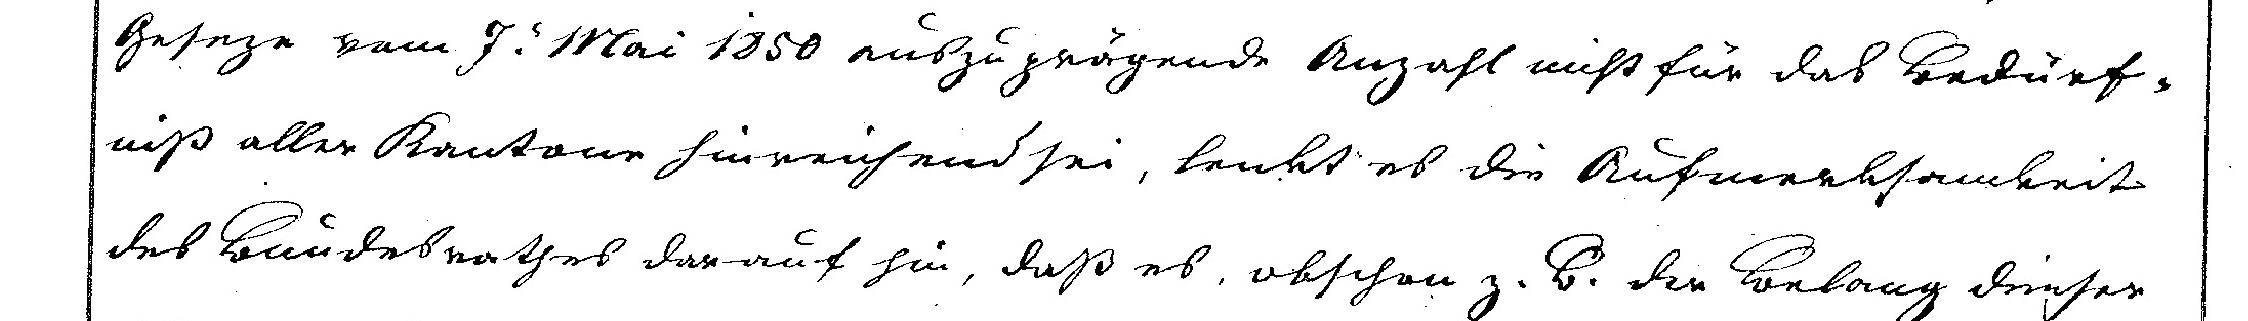 Geseze vom 7. Mai 1850 auszuprägende Anzahl nicht für das Bedürf-
niß aller Kantone hinreichend sei, lenkt es die Aufmerksamkeit
des Bundesrathes darauf hin, daß es, obschon z. B. der Belang dieser